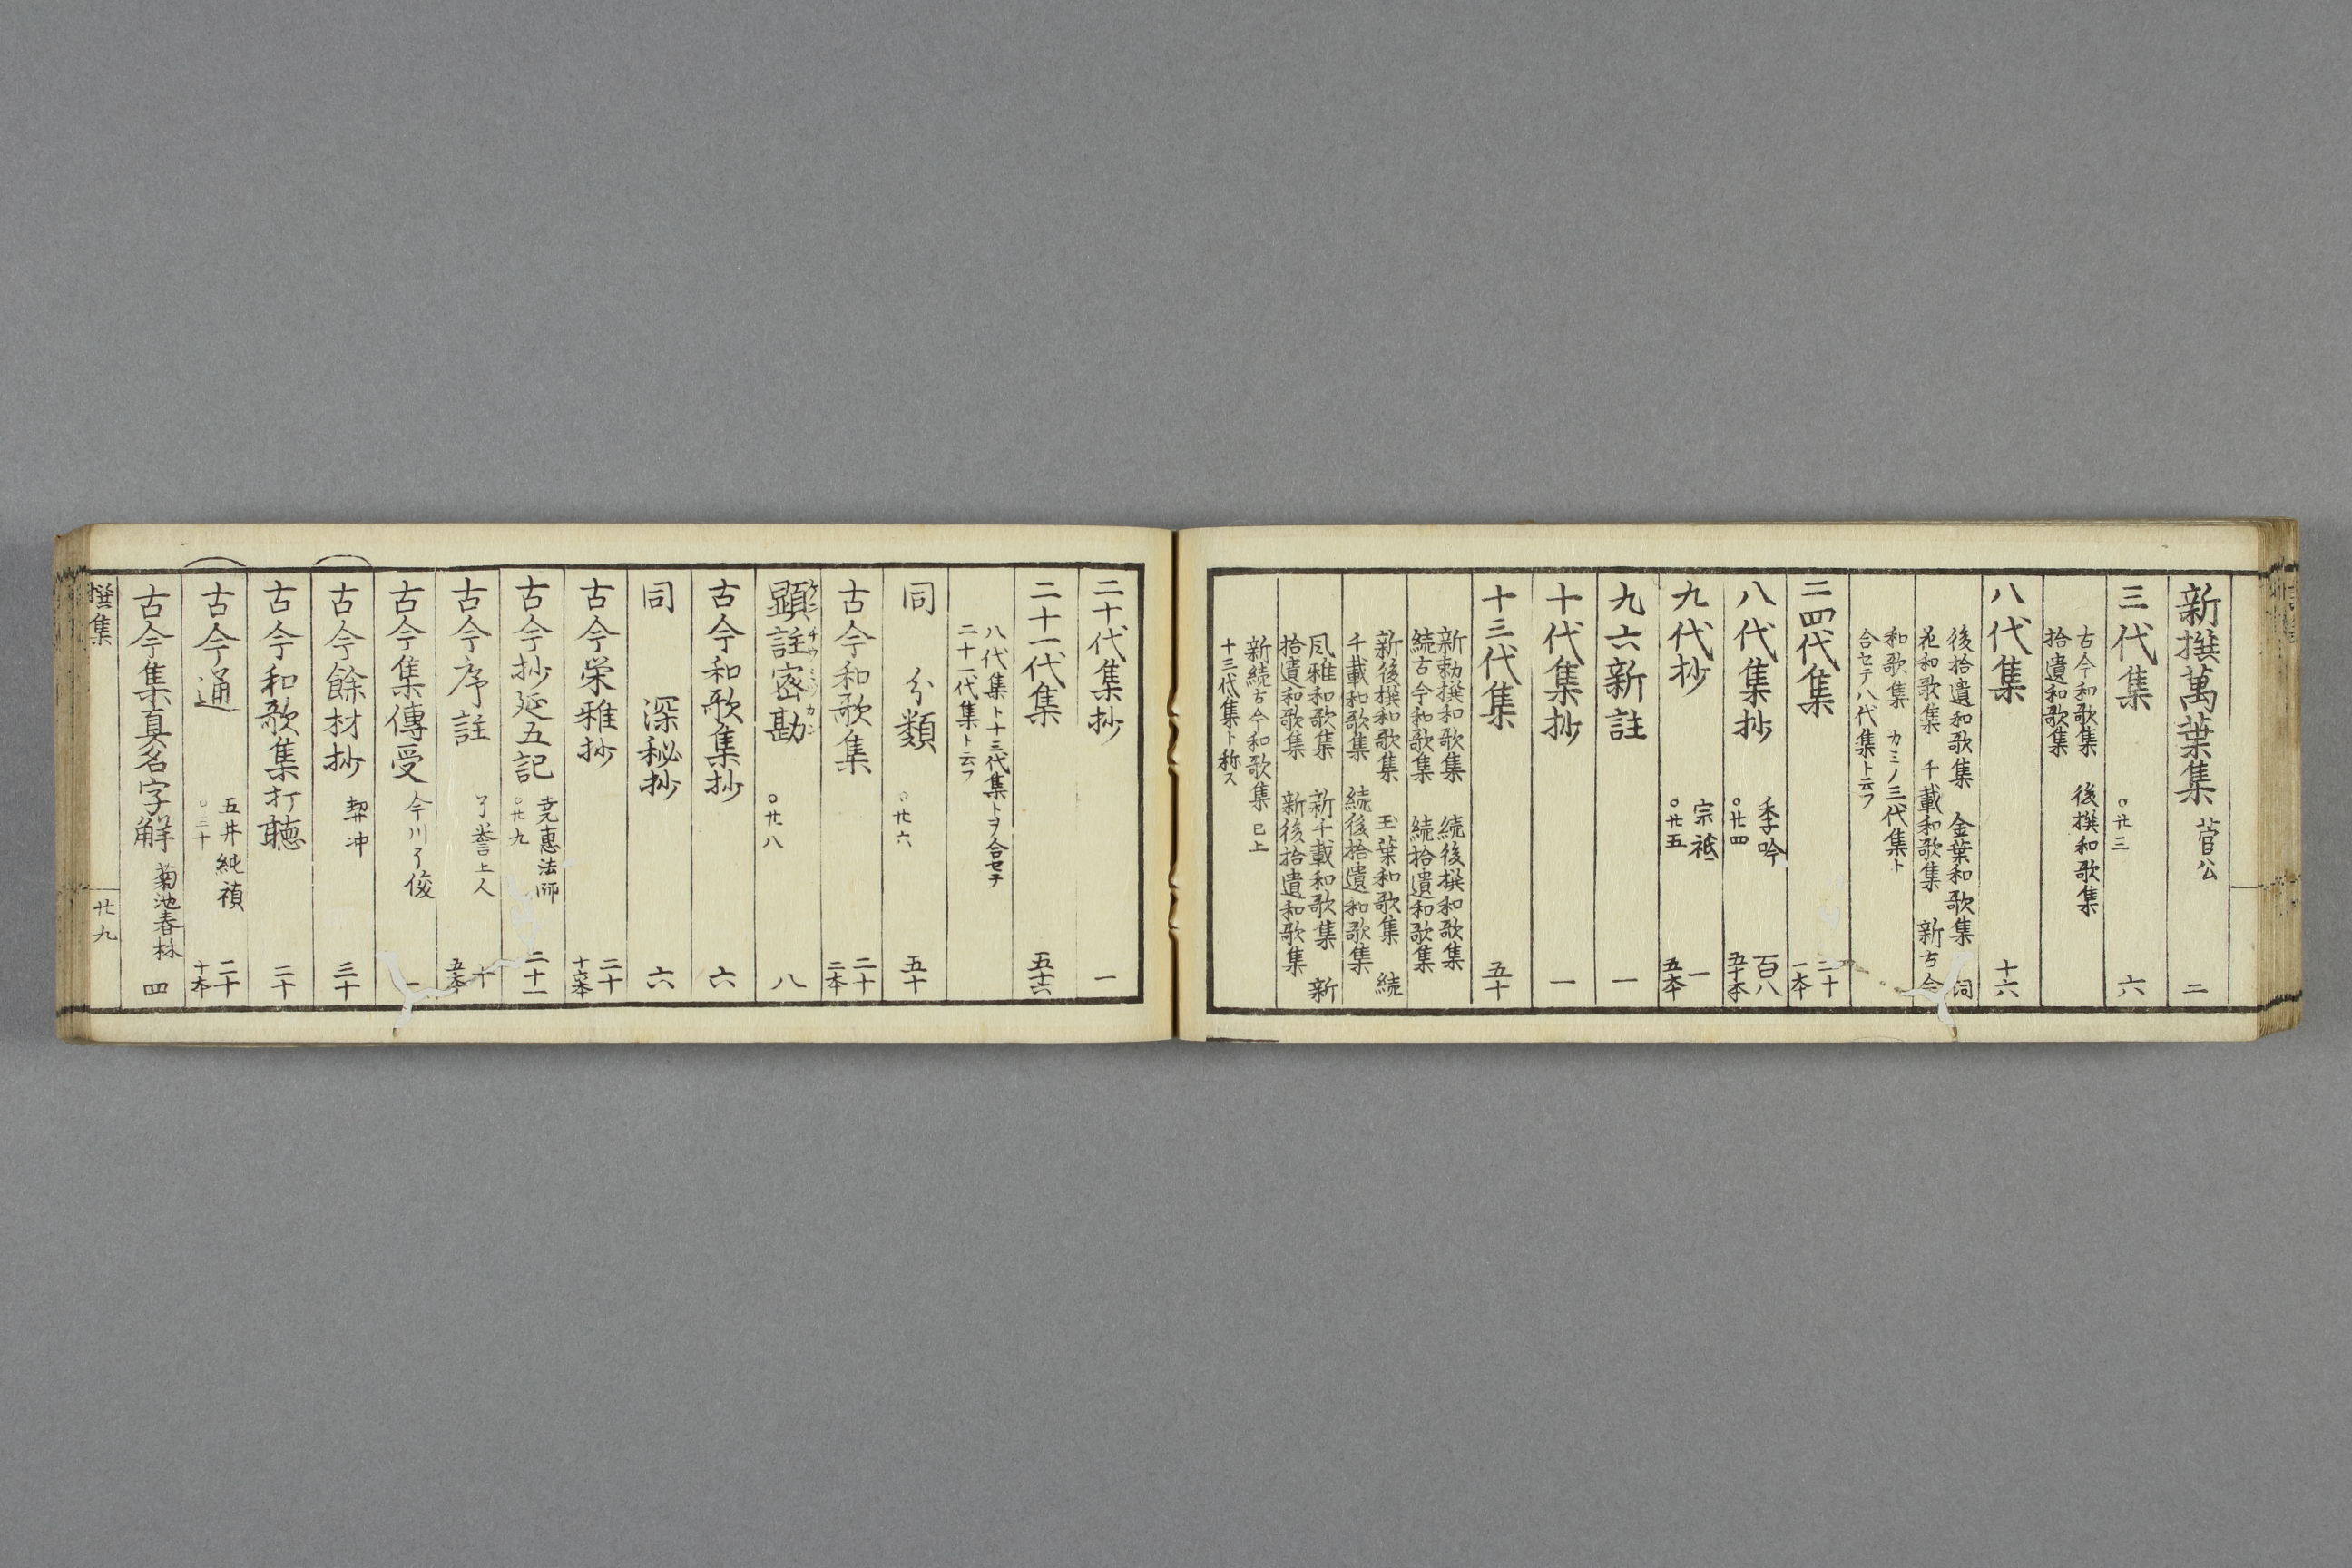 新撰萬葉集 菅公 二
三代集 ○廿三 六
古今和歌集 後撰和歌集
拾遺和歌集
八代集 十六
後拾遺和歌集 金葉和歌集 詞
花和歌集 千載和歌集 新古今
和歌集 カミノ三代集ト
合セテ八代集ト云フ
二四代集 二十 一本
八代集抄 季吟 ○廿四 百八 五十本
九代抄 宗祇 ○廿五 一 五本
九六新註 一
十代集抄 一
十三代集 五十
新勅撰和歌集 続後撰和歌集
続古今和歌集 続拾遺和歌集
新後撰和歌集 玉葉和歌集 続
千載和歌集 続後拾遺和歌集
風雅和歌集 新千載和歌集 新
拾遺和歌集 新後拾遺和歌集
新続古今和歌集 已上
十三代集ト称ス
二十代集抄 一
二十一代集 五十六
八代集ト十三代集トヲ合セテ
二十一代集ト云フ
同 分類 ○廿六 五十
古今和歌集 二十 二本
顕註密勘 ケンチウミツカン ○廿八 八
古今和歌集抄 六
同 深秘抄 六
古今栄雅抄 二十 十六本
古今抄延五記 尭惠法師 ○廿九 二十一
古今序註 了誉上人 十 五本
古今集傳受 今川了俊 一
古今餘材抄 契冲 三十
古今和歌集打聴 二十
古今通 五井純禎 ○三十 二十 十本
古今集真名字解 菊池春林 四
撰集 廿九